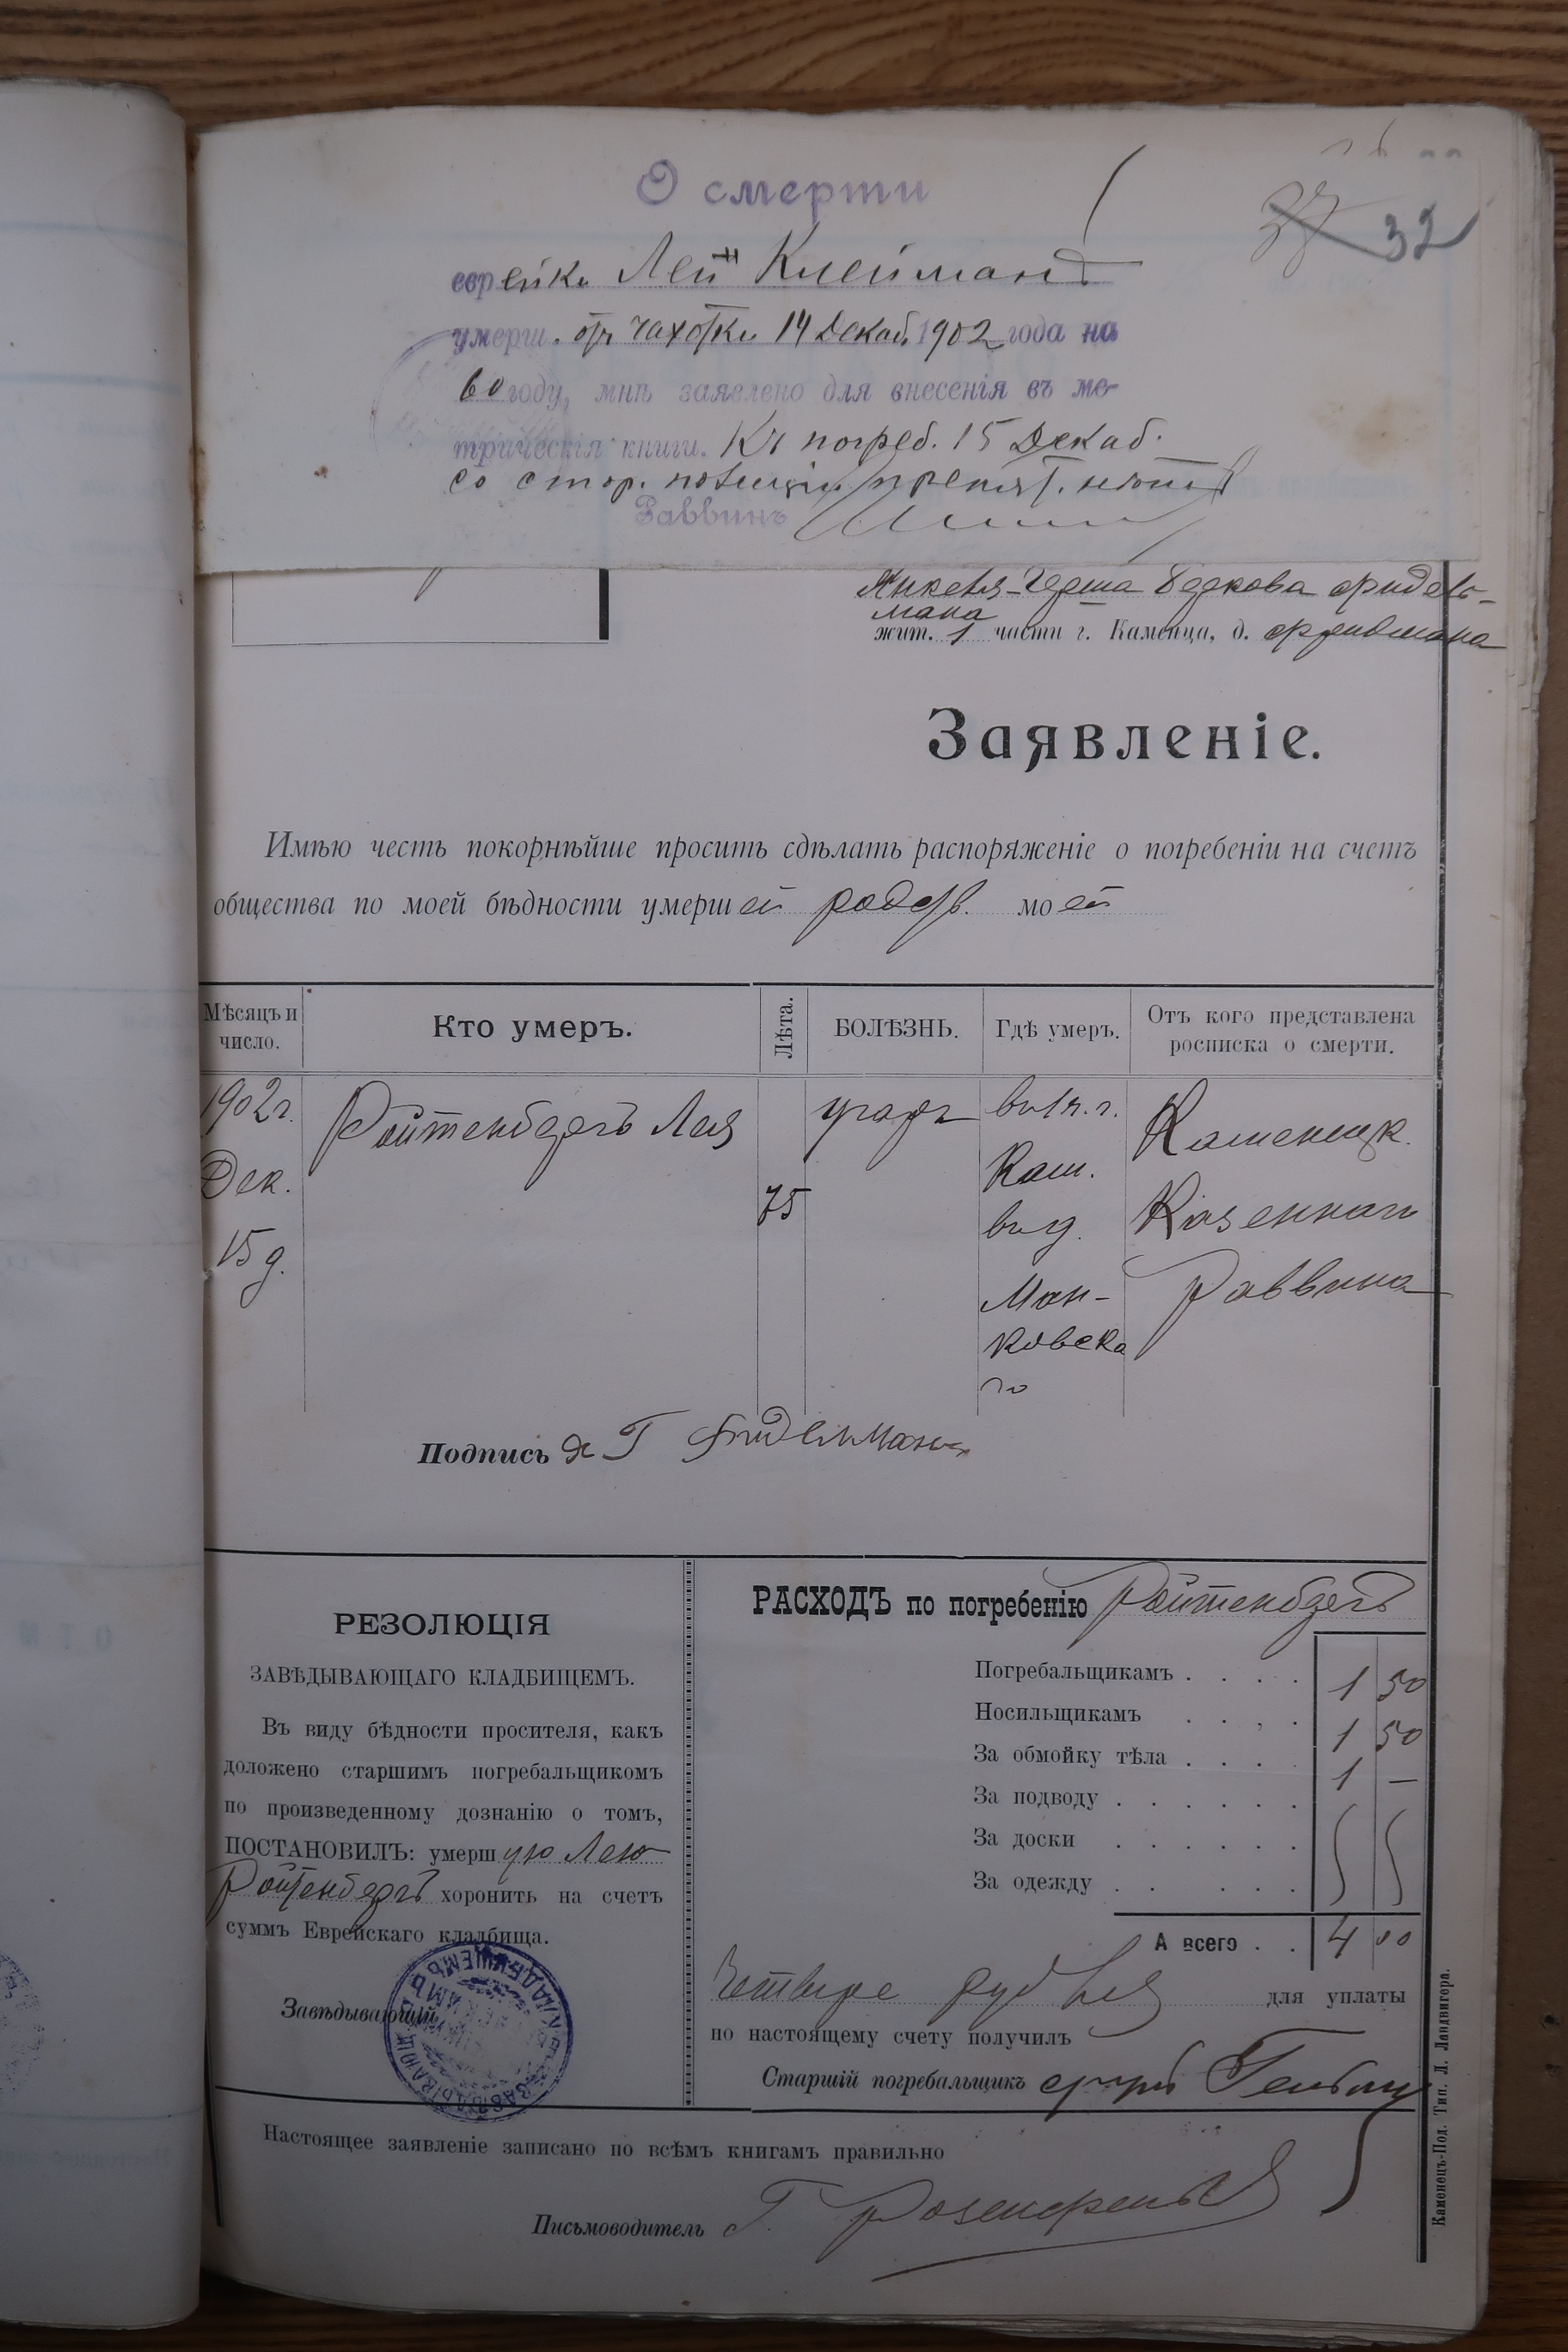 О смерти
32
еврейки Леи Клейманъ
умерш. отъ чахотки 14 Декаб. 1902 года на
60 году, мнѣ заявлено для внесенія въ ме-
трическія книги. Къ погреб. 15 Декаб.
со стор. полиціи препят. нѣтъ
Раввинъ
Янкеля-Герша Беркова Фридель-
мана
жит. 1 части г. Каменца, д. Фридмана
Заявленіе.
Имѣю честь покорнѣйше просить сдѣлать распоряженіе о погребеніи на счетъ
общества по моей бѣдности умершей родств. моей
Мѣсяцъ и число. Кто умеръ. Лѣта. БОЛѢЗНЬ. Гдѣ умеръ. Отъ кого представлена росписка о смерти.
1902 г. Ройтенбергъ Лея въ 1 ч. г. Каменецк.
Дек. 75 Кам. Казеннаго
15 д. въ д. Раввина
Ман-
ковска
го
Подпись Я Г Фридельманъ
РЕЗОЛЮЦІЯ
ЗАВѢДЫВАЮЩАГО КЛАДБИЩЕМЪ.
Въ виду бѣдности просителя, какъ
доложено старшимъ погребальщикомъ
по произведенному дознанію о томъ,
ПОСТАНОВИЛЪ: умершую Лею
Ройтенбергъ хоронить на счетъ
суммъ Еврейскаго кладбища.
Завѣдывающій
РАСХОДЪ по погребенію Ройтенбергъ
Погребальщикамъ . . . . 1 50
Носильщикамъ . . , . 1 50
За обмойку тѣла . . . . 1 —
За подводу . . . . . .
За доски . . . . . .
За одежду . . . . . .
А всего . . 4 00
Четыре рубля для уплаты
по настоящему счету получилъ
Старшій погребальщикъ
Настоящее заявленіе записано по всѣмъ книгамъ правильно
Письмоводитель Г. Розенфельд
Каменецъ-Под. Тип. Л. Ландвигера.